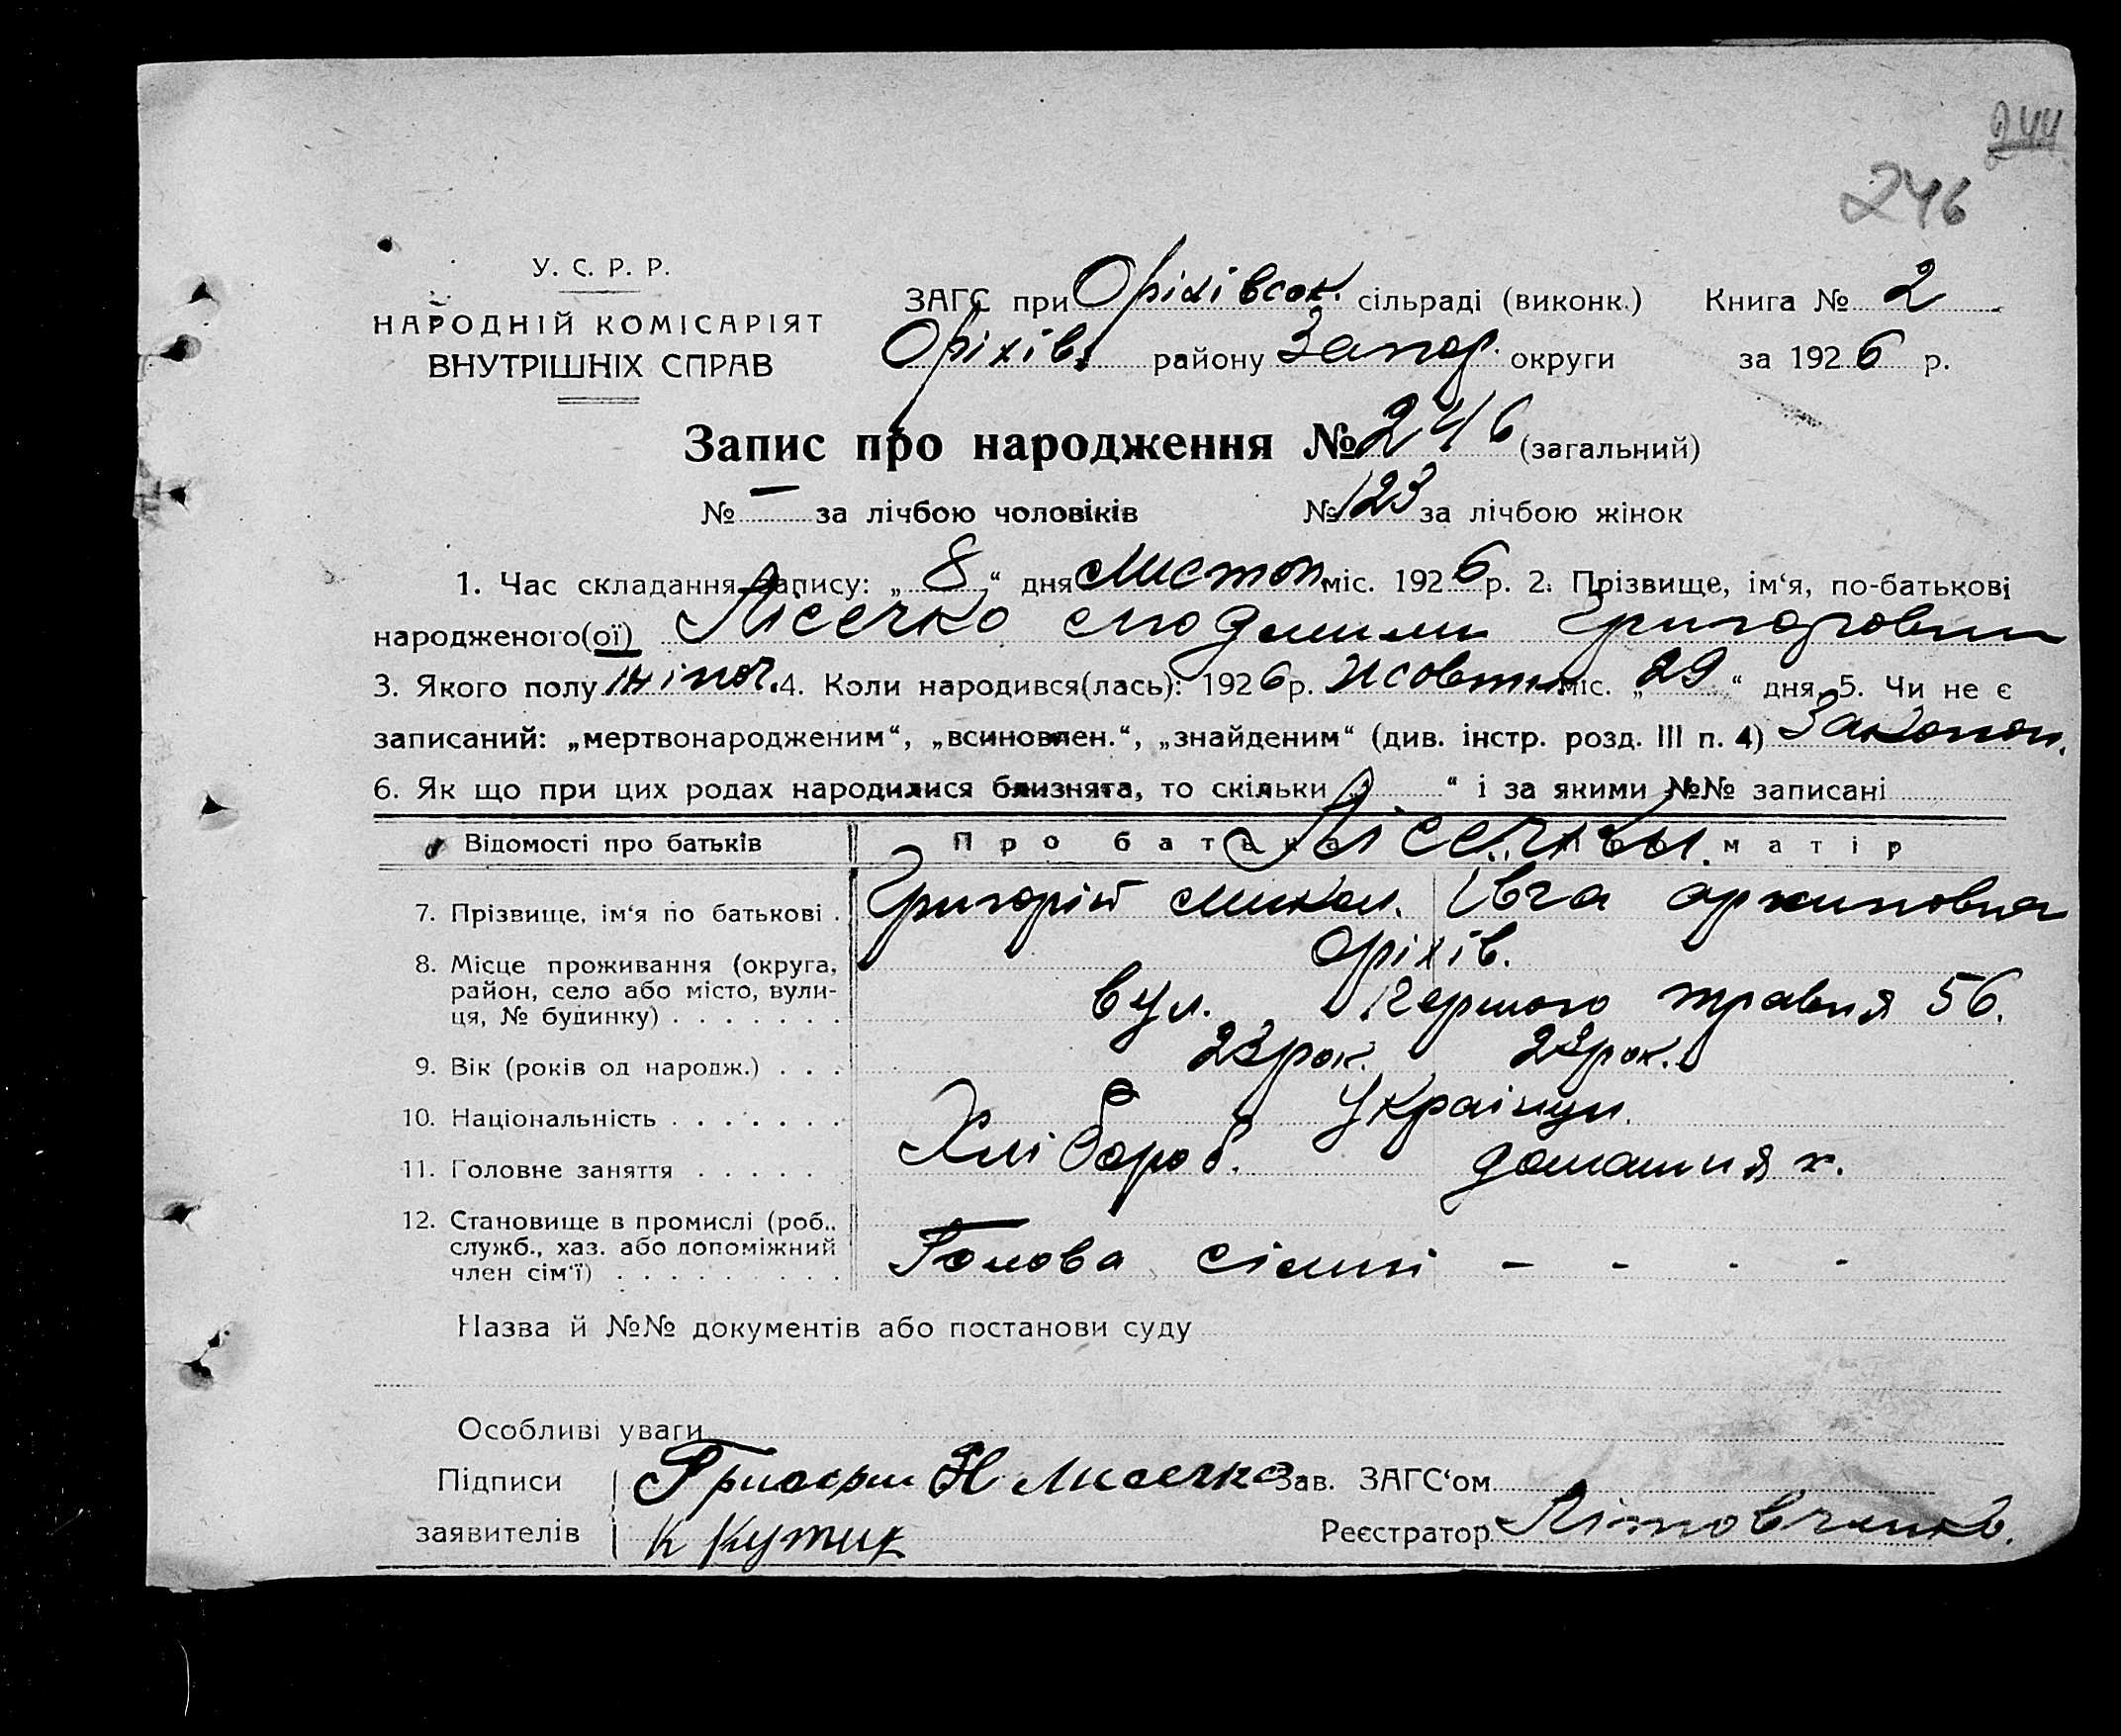 244
246
У. С. Р. Р.
НАРОДНІЙ КОМІСАРІЯТ
ВНУТРІШНІХ СПРАВ
ЗАГС при Оріхівськ. сільраді (виконк.) Книга № 2
Оріхів. району Запор. округи за 1926 р.
Запис про народження № 246 (загальний)
№ — за лічбою чоловіків № 123 за лічбою жінок
1. Час складання запису: „8“ дня Листоп міс. 1926 р. 2. Прізвище, ім‘я, по-батькові
народженого(ої) Лісечко Людмили Григоровни
3. Якого полу жіноч. 4. Коли народився(лась): 1926 р. Жовтня міс. „29“ дня 5. Чи не є
записаний: „мертвонародженим“, „всиновлен.“, „знайденим“ (див. інстр. розд. III п. 4) Законон.
6. Як що при цих родах народилися близнята, то скільки “ і за якими №№ записані
Відомості про батьків Про батька Лісечки. матір
7. Прізвище, ім‘я по батькові . Григорій Микол. Івга Архиповна
8. Місце проживання (округа, Оріхів.
район, село або місто, вули- вул. Першого травня 56.
ця, № будинку) . . . . . . .
9. Вік (років од народж.) . . . 23 рок. 23 рок.
10. Національність . . . . . . . Українци.
11. Головне заняття . . . . . Хлібороб. домашня х.
12. Становище в промислі (роб.,
служб., хаз. або допоміжний Голова сімті - - - -
член сім‘ї) . . . . . . . . .
Назва й №№ документів або постанови суду
Особливі уваги
Підписи Н Лисечко Зав. ЗАГС‘ом
заявителів К Кутик Реєстратор Літовченко.